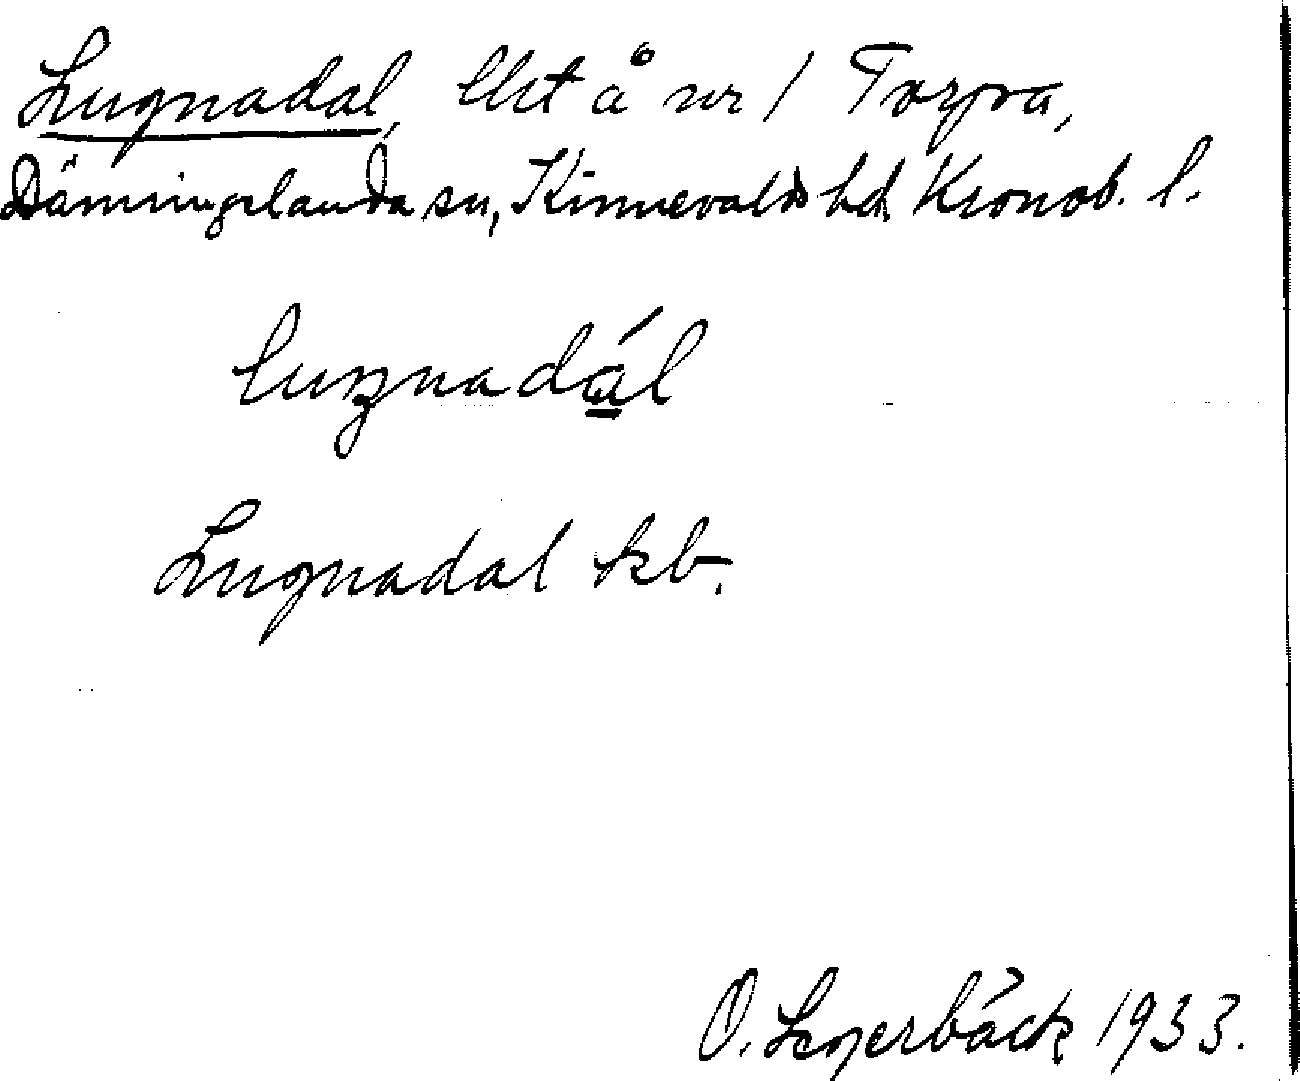 Lugnadal, lht å nr 1 Torpa,
Dänningelanda sn, Kinnevalds hd, Kronob. l.
luŋnadál
Lugnadal kb.
O. Legerbäck 1933.